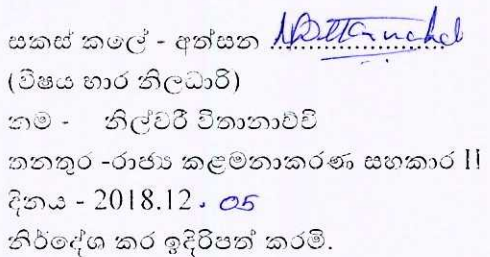 සකස් කලේ - අත්සන ....................
(විෂය භාර නිලධාරි)
නම - නිල්වරී විතානාච්චි
තනතුර -රාජ්‍ය කළමනාකරණ සහකාර II
දිනය - 2018.12. 05
නිර්දේශ කර ඉදිරිපත් කරමි.